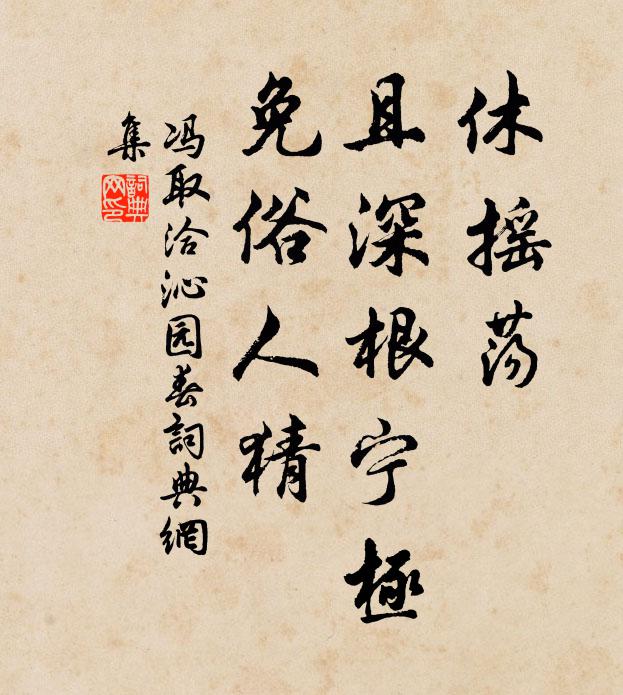 休摇荡
且深根宁极
免俗人猜
冯取洽沁园春詞典網
集
詞典
网印